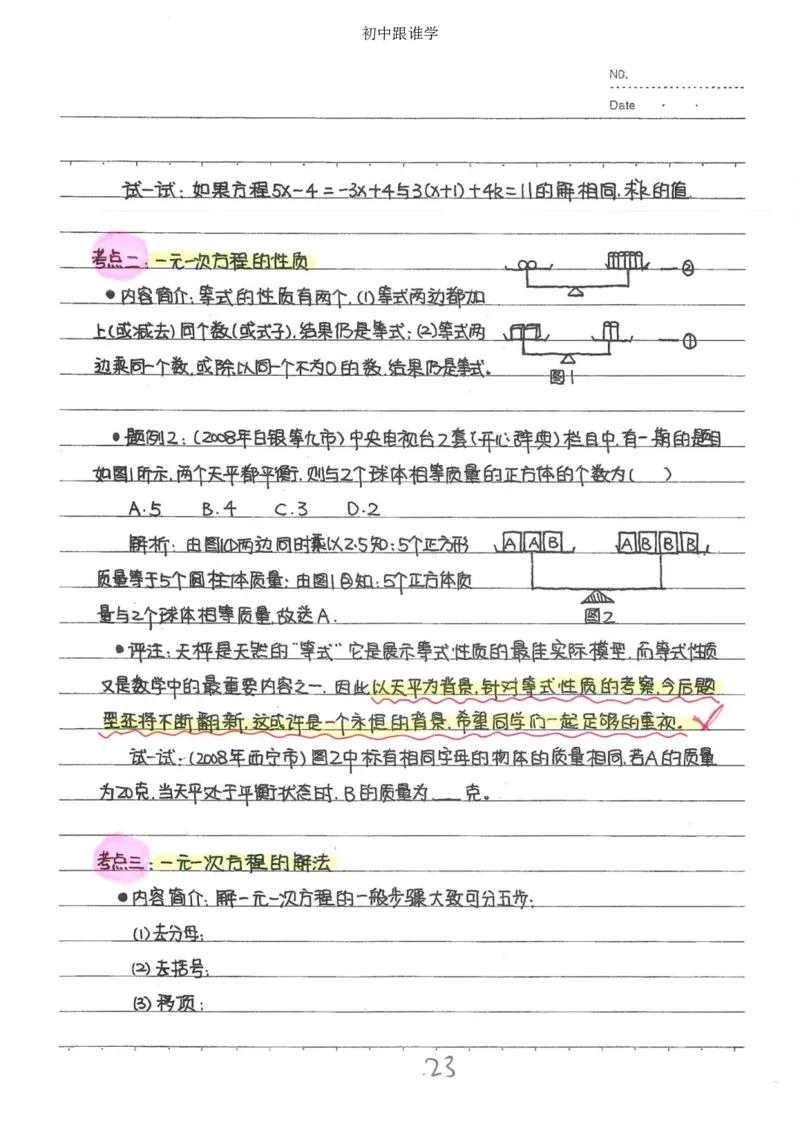 初中跟谁学
NO.
Date
试一试：如果方程5x-4=-3x+4与3(x+1)+4k=11的解相同,求k的值.
考点二：一元一次方程的性质
②
•内容简介：等式的性质有两个,(1)等式两边都加
上(或减去)同个数(或式子),结果仍是等式；(2)等式两
①
边乘同一个数,或除以同一个不为0的数,结果仍是等式。
图1
•题例2：(2008年白银等九市)中央电视台2套《开心辞典》栏目中,有一期的题目
如图1所示,两个天平都平衡,则与2个球体相等质量的正方体的个数为( )
A.5 B.4 C.3 D.2
解析：由图1①两边同时乘以2.5知：5个正方形
A A B A B B B
质量等于5个圆柱体质量；由图1②知：5个正方体质
量与2个球体相等质量,故选A.
图2
•评注：天枰是天然的“等式”它是展示等式性质的最佳实际模型,而等式性质
又是数学中的最重要内容之一.因此,以天平为背景,针对等式性质的考察,今后题
型还将不断翻新,这或许是一个永恒的背景,希望同学们一起足够的重视。
试一试：(2008年西宁市)图2中标有相同字母的物体的质量相同,若A的质量
为20克,当天平处于平衡状态时,B的质量为___克。
考点三：一元一次方程的解法
•内容简介：解一元一次方程的一般步骤大致可分五步：
(1)去分母；
(2)去括号；
(3)移项；
23